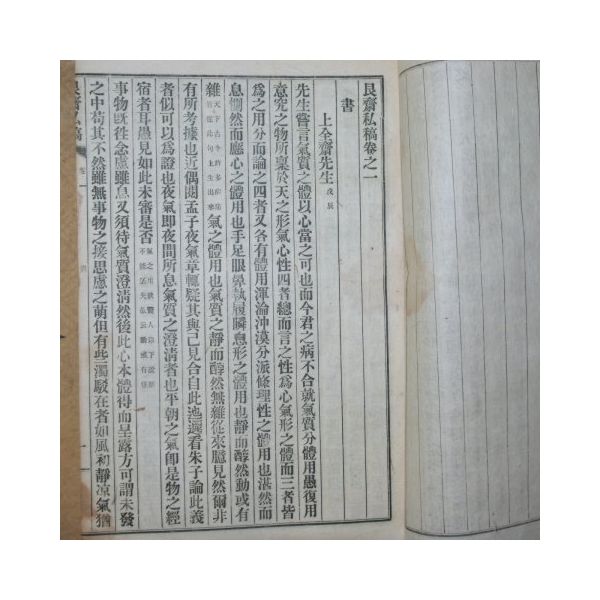 艮齋私稿卷之一
書
上全齋先生 戊辰
先生嘗言氣質之體以心當之可也而今君之病不合就氣質分體用愚復用
意究之物所稟於天之形氣心性四者總而言之性爲心氣形之體而三者皆
爲之用分而論之四者又各有體用渾淪沖漠分派條理性之體用也湛然而
息惻然而應心之體用也手足眼鼻執履瞬息形之體用也靜而醇然動或有
雜 氣之體用也氣質之靜而醇然無雜從來臆見然爾非
有所考據也近偶閱孟子夜氣章輒疑其與己見合自此遂還看朱子論此義
者似可以爲證也夜氣卽夜間所息氣質之澄清者也平朝之氣卽是物之經
宿者耳愚見如此未審是否
事物旣往念慮雖息又須待氣質澄清然後此心本體得而呈露方可謂未發
之中苟其不然雖無事物之接思慮之萌但有些濁駁在者如風初靜凉氣猶
艮齋私稿 卷一